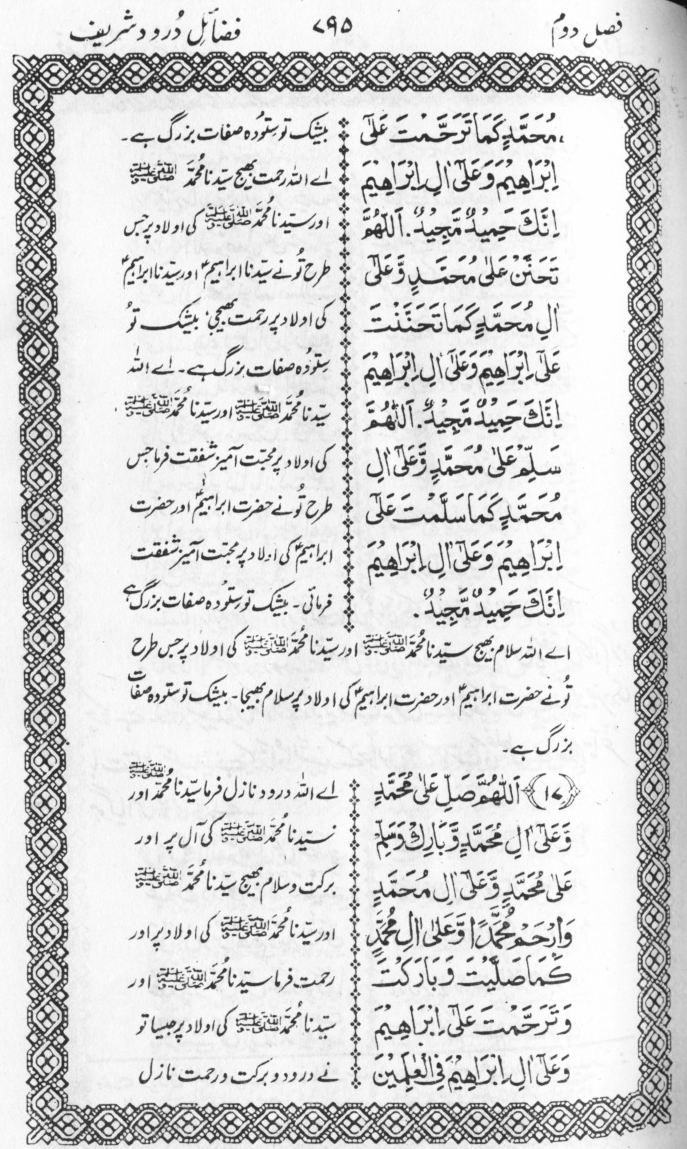 فصل دوم
۷۹۵
فضائل درود شریف
مُحَمَّدٍ کَمَا تَرَحَّمْتَ عَلٰٓی
اِبْرَاهِیْمَ وَعَلٰٓی اٰلِ اِبْرَاهِیْمَ
اِنَّكَ حَمِیْدٌ مَّجِیْدٌ. اَللّٰهُمَّ
تَحَنَّنْ عَلٰی مُحَمَّدٍ وَّعَلٰٓی
اٰلِ مُحَمَّدٍ کَمَا تَحَنَّنْتَ
عَلٰٓی اِبْرَاهِیْمَ وَعَلٰٓی اٰلِ اِبْرَاهِیْمَ
اِنَّكَ حَمِیْدٌ مَّجِیْدٌ. اَللّٰهُمَّ
سَلِّمْ عَلٰی مُحَمَّدٍ وَّعَلٰٓی اٰلِ
مُحَمَّدٍ کَمَا سَلَّمْتَ عَلٰٓی
اِبْرَاهِیْمَ وَعَلٰٓی اٰلِ اِبْرَاهِیْمَ
اِنَّكَ حَمِیْدٌ مَّجِیْدٌ
بیشک تو ستودہ صفات بزرگ ہے۔
اے اللہ رحمت بھیج سیدنا محمد ﷺ
اور سیدنا محمد ﷺ کی اولاد پر جس
طرح تونے سیدنا ابراہیمؑ اور سیدنا ابراہیمؑ
کی اولاد پر رحمت بھیجی۔ بیشک تو
ستودہ صفات بزرگ ہے۔ اے اللہ
سیدنا محمد ﷺ اور سیدنا محمد ﷺ
کی اولاد پر محبت آمیز شفقت فرما جس
طرح تونے حضرت ابراہیمؑ اور حضرت
ابراہیمؑ کی اولاد پر محبت آمیز شفقت
فرمائی۔ بیشک تو ستودہ صفات بزرگ ہے
اے اللہ سلام بھیج سیدنا محمد ﷺ اور سیدنا محمد ﷺ کی اولاد پر جس طرح
تونے حضرت ابراہیمؑ اور حضرت ابراہیمؑ کی اولاد پر سلام بھیجا۔ بیشک تو ستودہ صفات
بزرگ ہے۔
﴿۱۷﴾ اَللّٰهُمَّ صَلِّ عَلٰی مُحَمَّدٍ
وَّعَلٰٓی اٰلِ مُحَمَّدٍ وَّبَارِكْ وَسَلِّمْ
عَلٰی مُحَمَّدٍ وَّعَلٰٓی اٰلِ مُحَمَّدٍ
وَارْحَمْ مُحَمَّدًا وَّعَلٰٓی اٰلِ مُحَمَّدٍ
کَمَا صَلَّیْتَ وَبَارَکْتَ
وَتَرَحَّمْتَ عَلٰٓی اِبْرَاهِیْمَ
وَعَلٰٓی اٰلِ اِبْرَاهِیْمَ فِی الْعٰلَمِیْنَ
اے اللہ درود نازل فرما سیدنا محمد ﷺ اور
سیدنا محمد ﷺ کی آل پر اور
برکت و سلام بھیج سیدنا محمد ﷺ
اور سیدنا محمد ﷺ کی اولاد پر اور
رحمت فرما سیدنا محمد ﷺ اور
سیدنا محمد ﷺ کی اولاد پر جیسا تو
نے درود و برکت و رحمت نازل